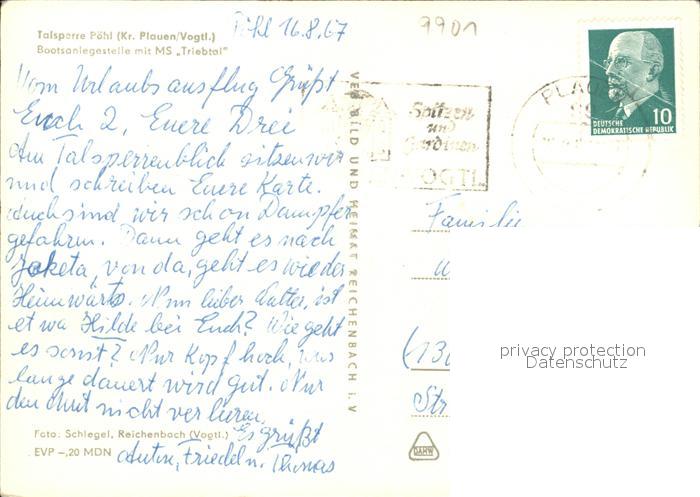 Talsperre Pöhl (Kr. Plauen/Vogtl.)
Bootsanlegestelle mit MS „Triebtal"
Pöhl 16.8.67
9901
Vom Urlaubsausflug Grüßt
Euch 2, Euere Drei
Am Talsperrenblick sitzen wir
und schreiben Euere Karte.
Auch sind wir schon Dampfer
gefahren. Dann geht es nach
Jocketa, von da, geht es wieder
Heimwärts. Nun lieber ist
etwa Hilde bei Euch? Wie geht
es sonst? Nur Kopf hoch, was
lange dauert wird gut. Nur
den Mut nicht verlieren.
Es grüßt
Anton, Friedel u. Thomas
Foto: Schlegel, Reichenbach (Vogtl.)
EVP -,20 MDN
VEB BILD UND HEIMAT REICHENBACH i. V
Spitzen
und
Gardinen
VOGTL
PLAUEN
10
DEUTSCHE
DEMOKRATISCHE REPUBLIK
Familie
(13
Str
privacy protection
Datenschutz
DAMW